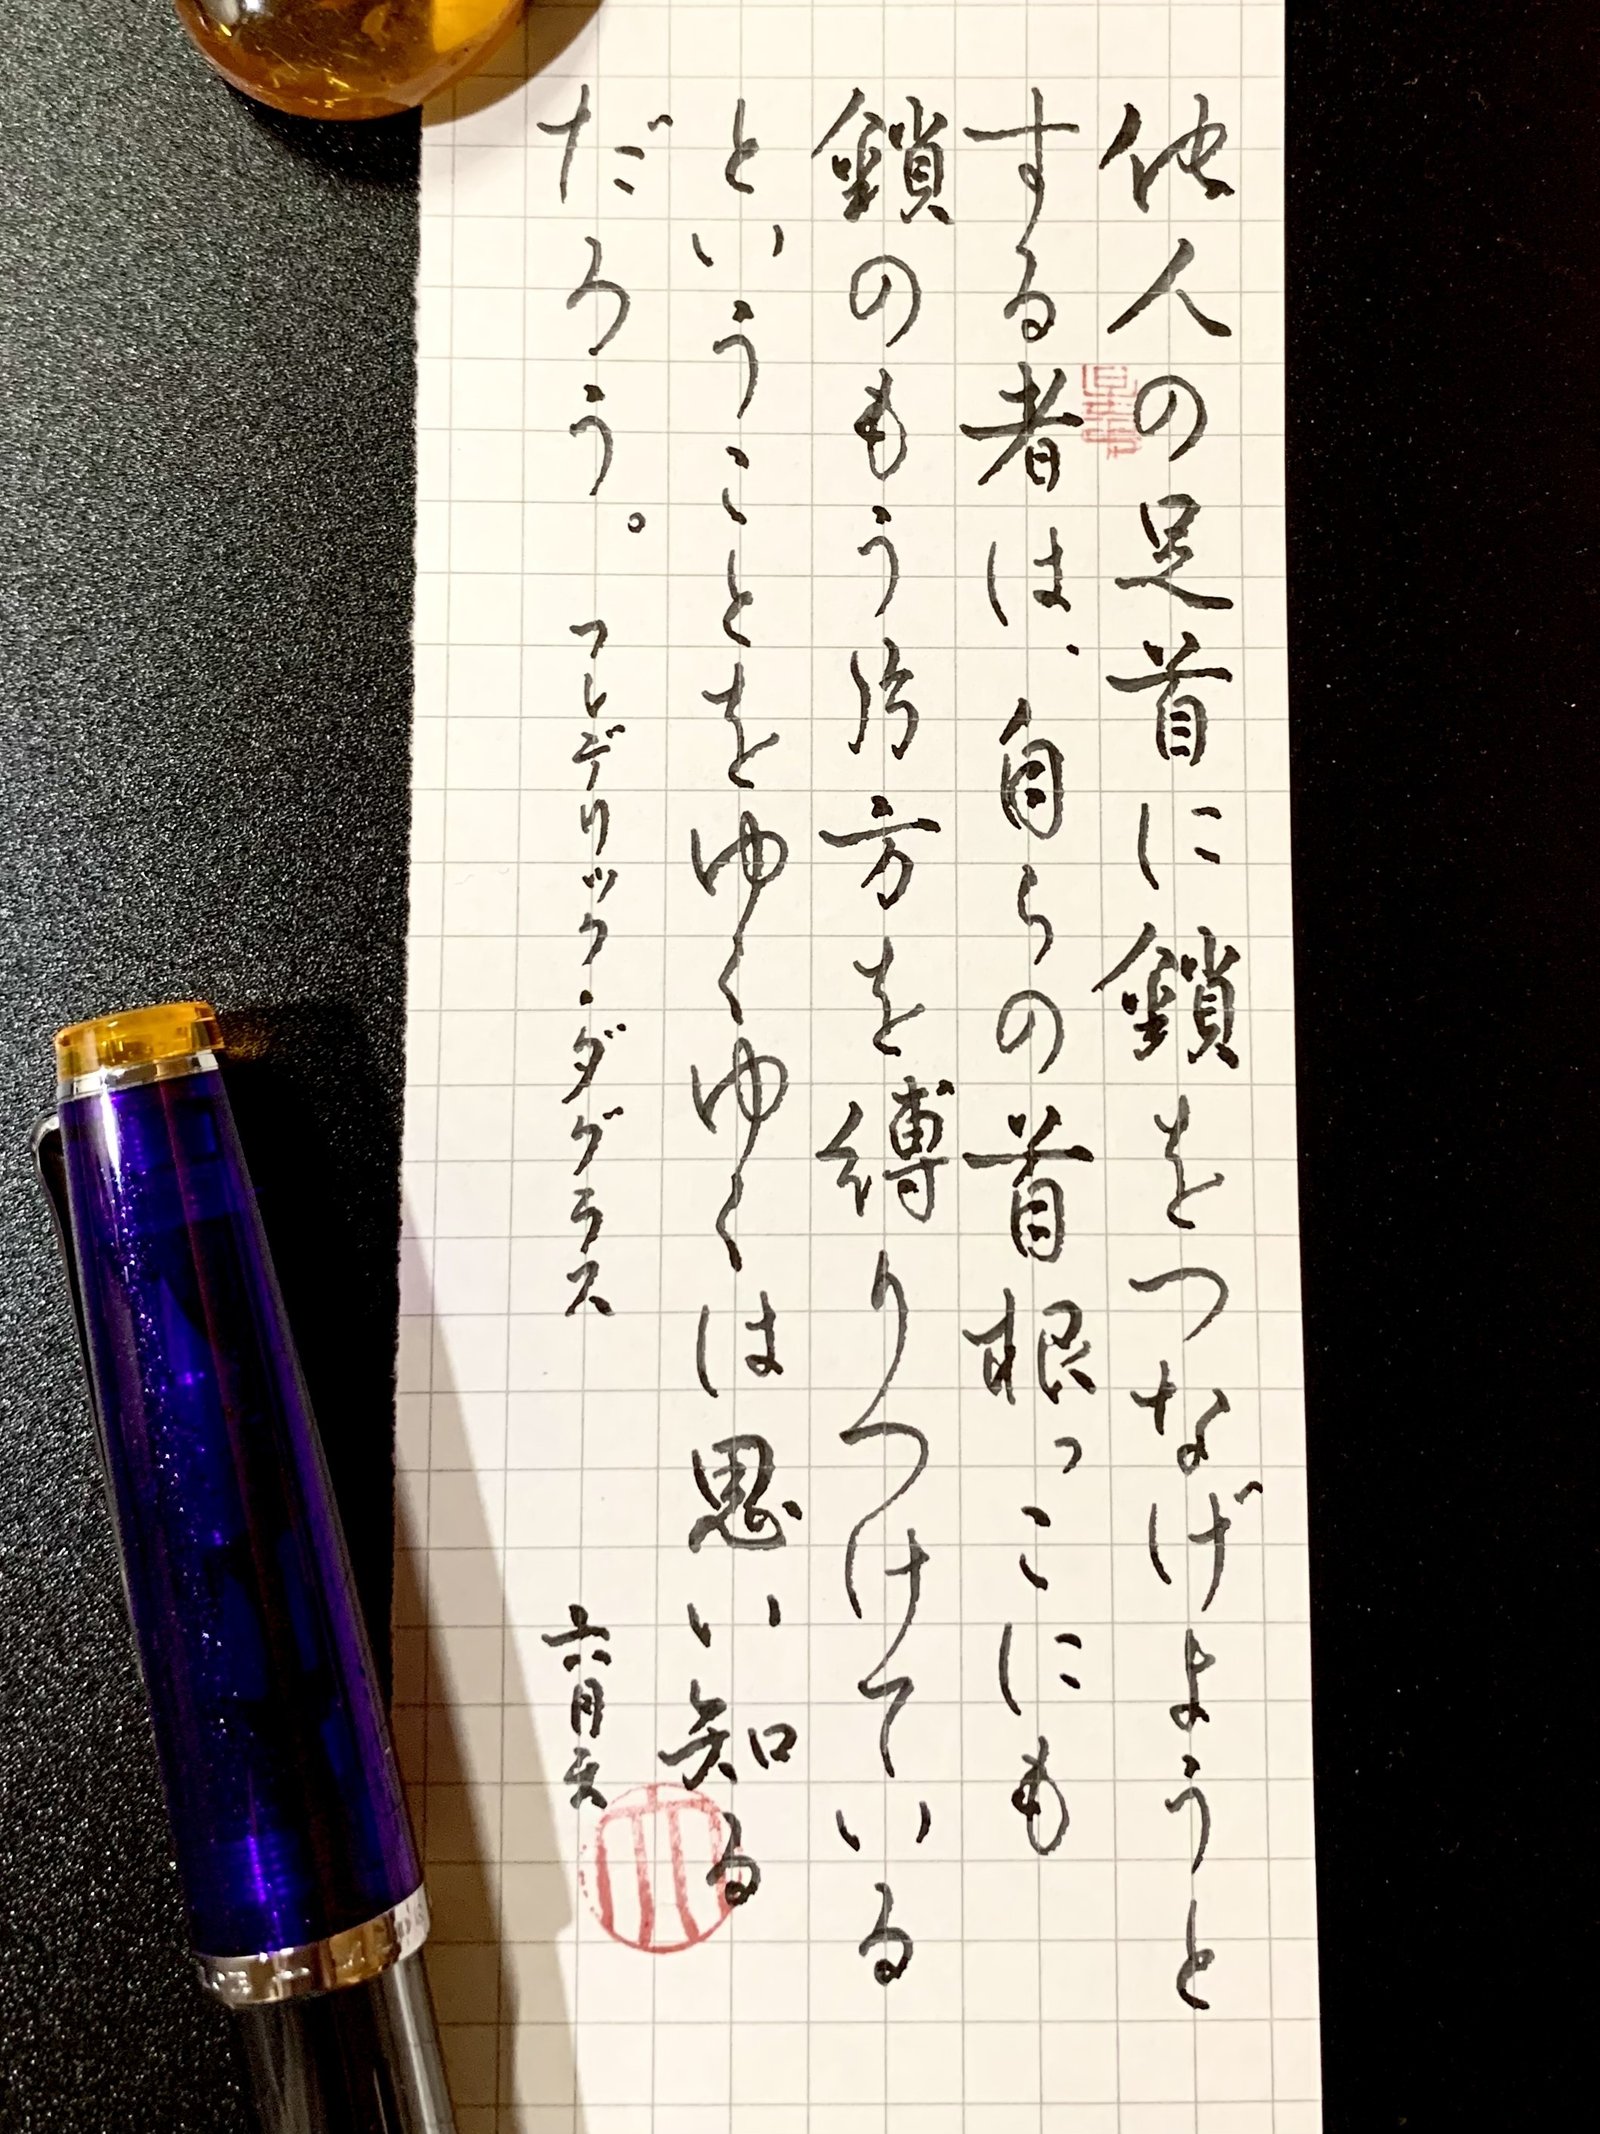 他人の足首に鎖をつなげようと
する者は、自らの首根っこにも
鎖のもう片方を縛りつけている
ということをゆくゆくは思い知る
だろう。 フレデリック・ダグラス 六月